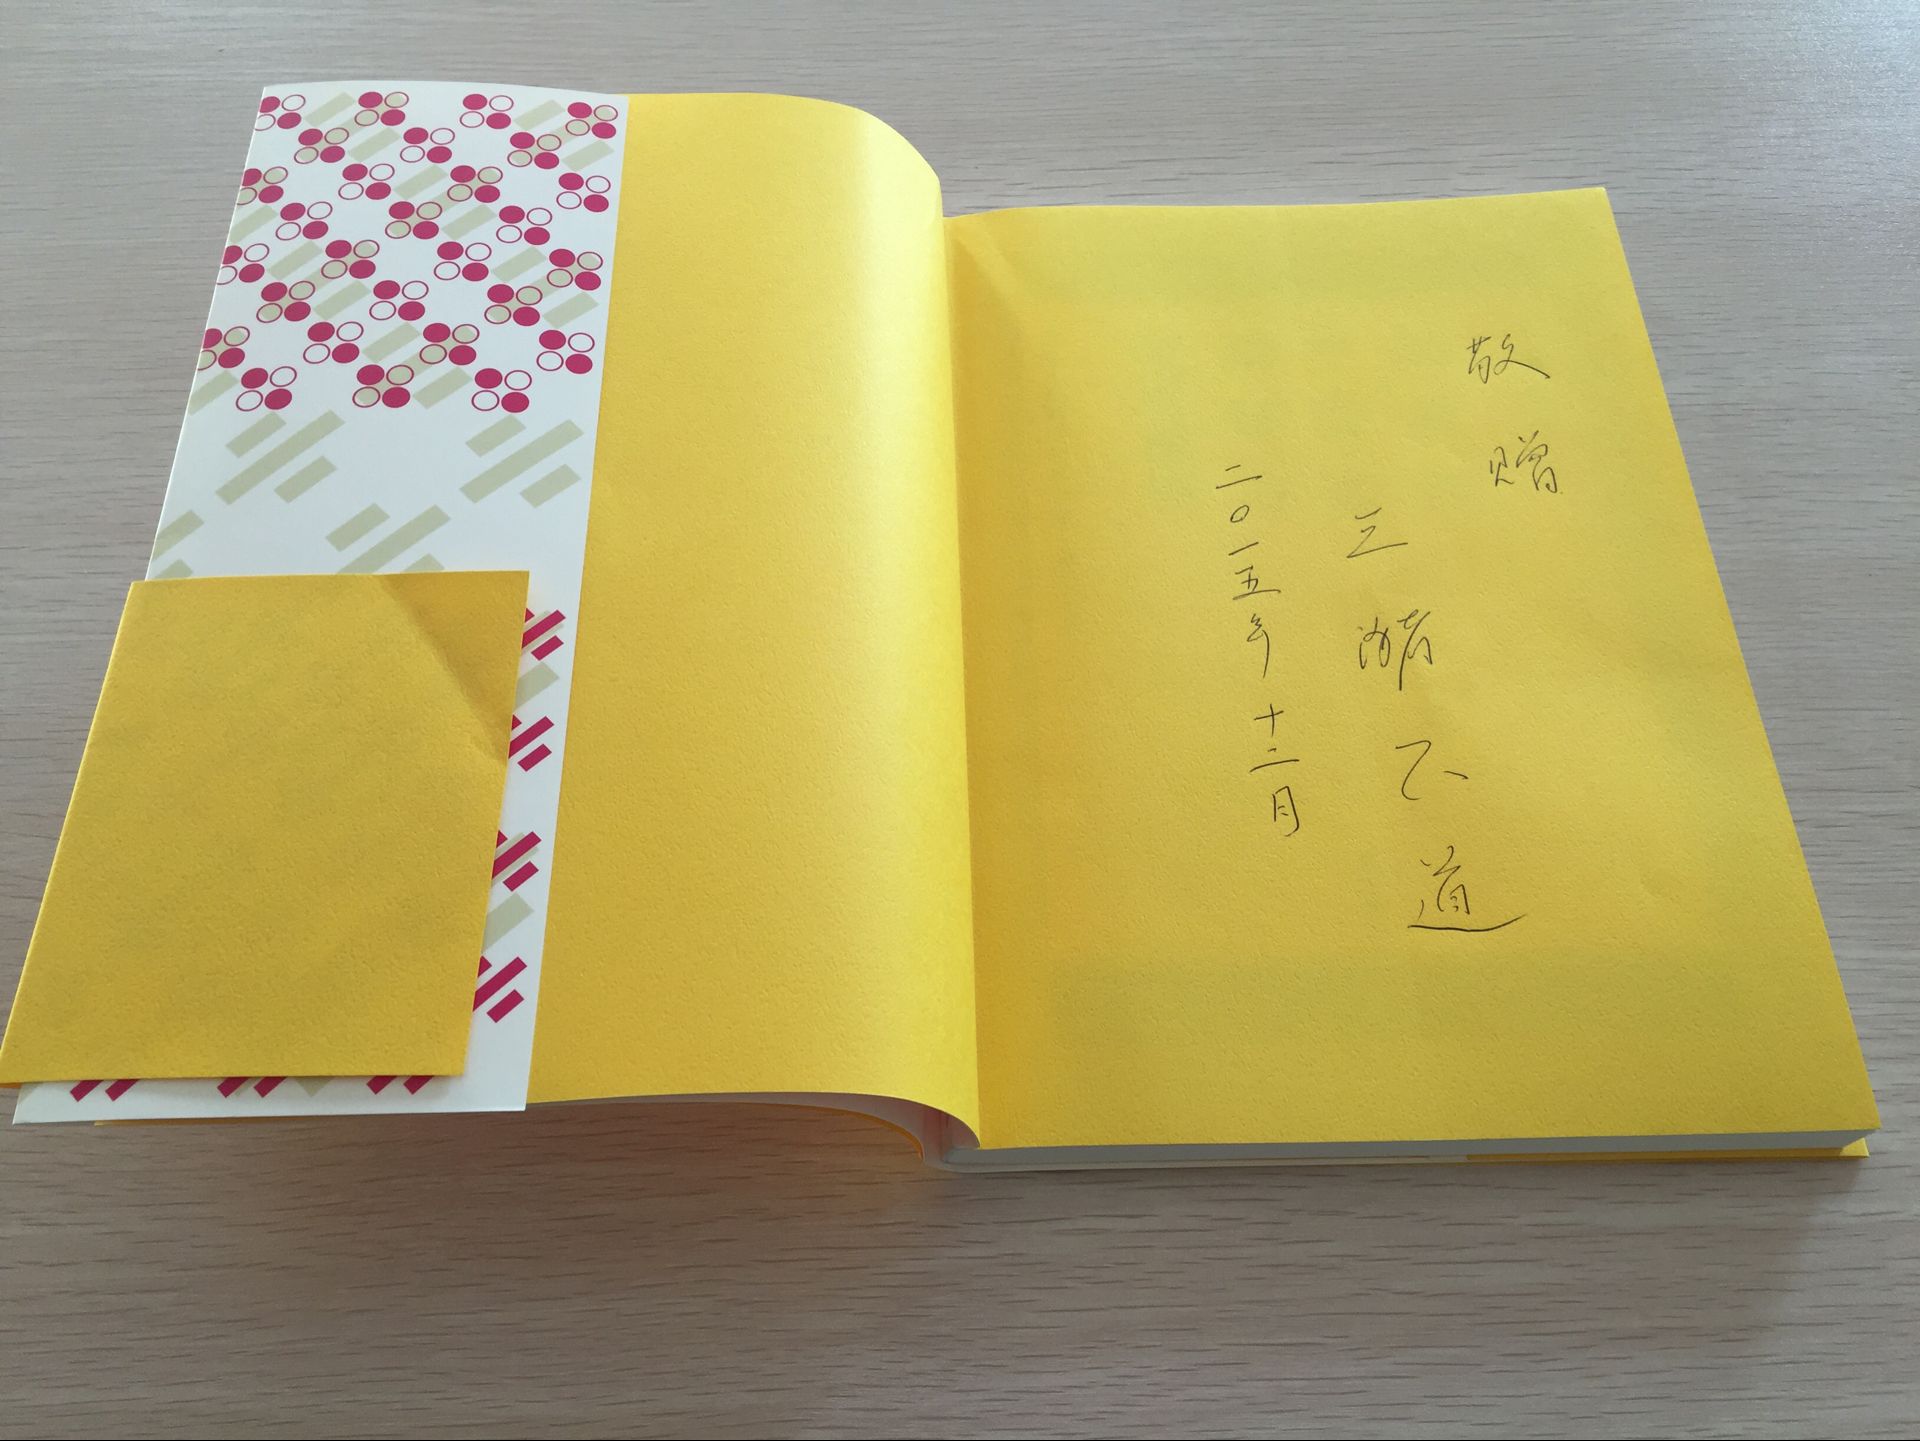 敬赠
三潴正道
二〇一五年十二月